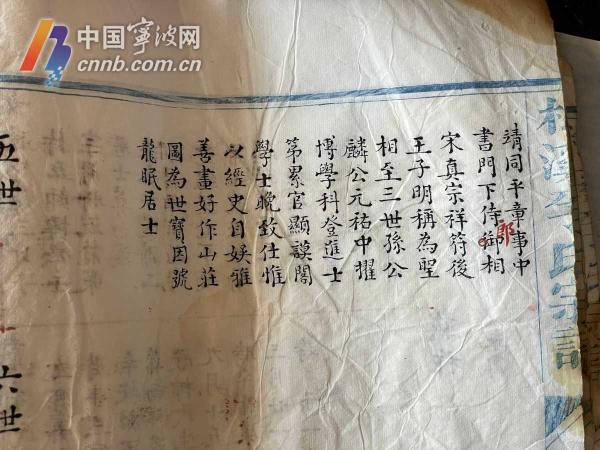 中国宁波网
cnnb.com.cn
李氏宗譜
靖同平章事中
書門下侍御相
郎
宋真宗祥符後
王子明稱為聖
相至三世孫公
麟公元祐中擢
博學科登進士
第累官顯謨閣
學士晚致仕惟
以經史自娛雅
善畫好作山莊
圖為世寶因號
龍眠居士
五世
六世